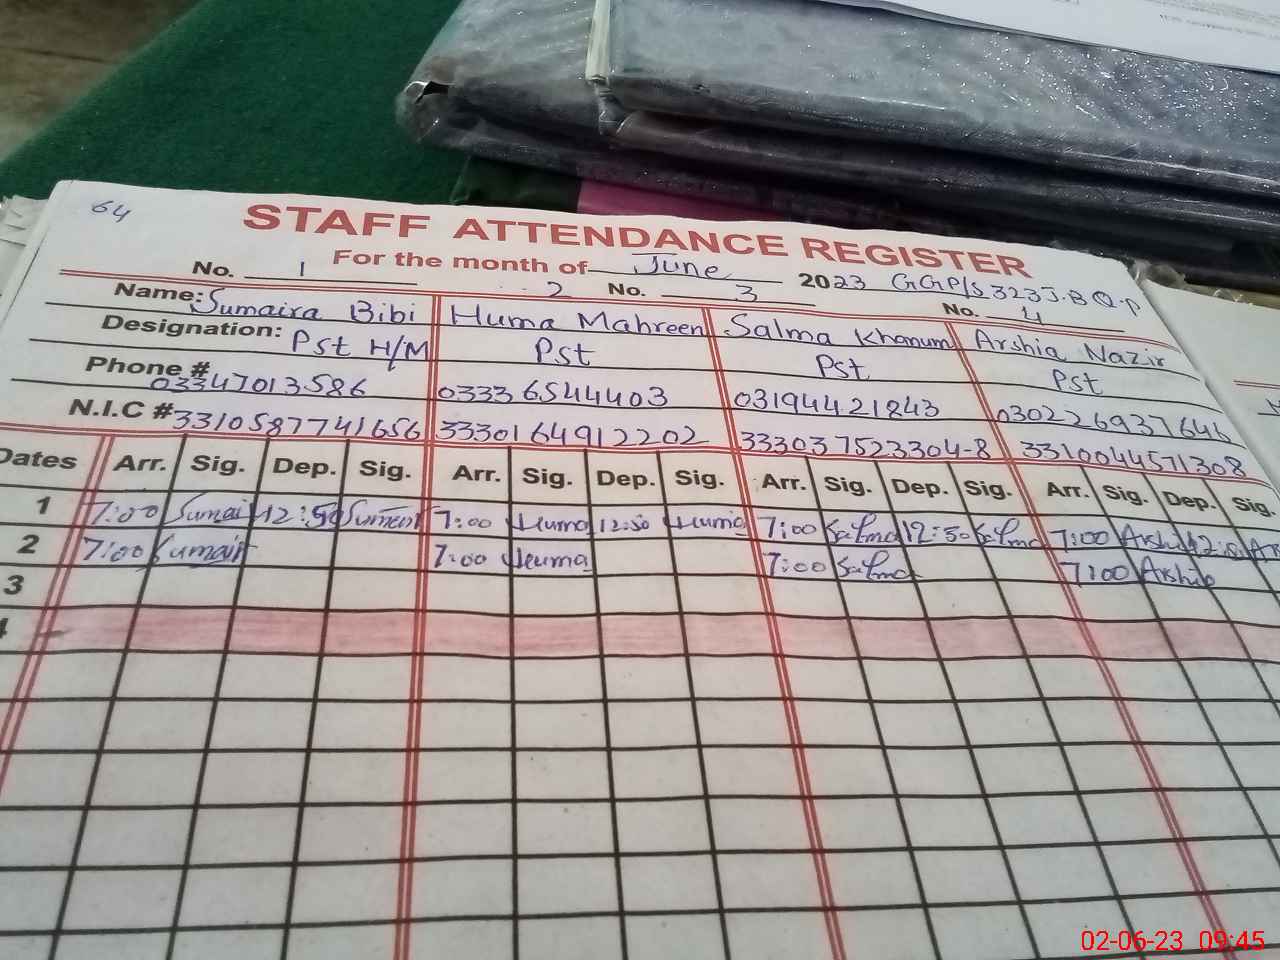 64
STAFF ATTENDANCE REGISTER
For the month of June 2023 GGP/S 323 J.B Q.P
No. 1 2 No. 3 No. 4
Name: Sumaira Bibi Huma Mahreen Salma Khanum Arshia Nazir
Designation: Pst H/M Pst Pst Pst
Phone # 03347013586 03336544403 03194421843 03022693764
N.I.C # 3310587741656 3330164912202 333037523304-8 3310044571308
Dates Arr. Sig. Dep. Sig. Arr. Sig. Dep. Sig. Arr. Sig. Dep. Sig. Arr. Sig. Dep. Sig.
1 7:00 Sumair 12:50 7:00 Huma 12:50 Huma 7:00 Salma 12:50 Salma 7:00 Arshia
2 7:00 Sumair 7:00 Huma 7:00 Salma 7:00 Arshia
3
4
02-06-23 09:45